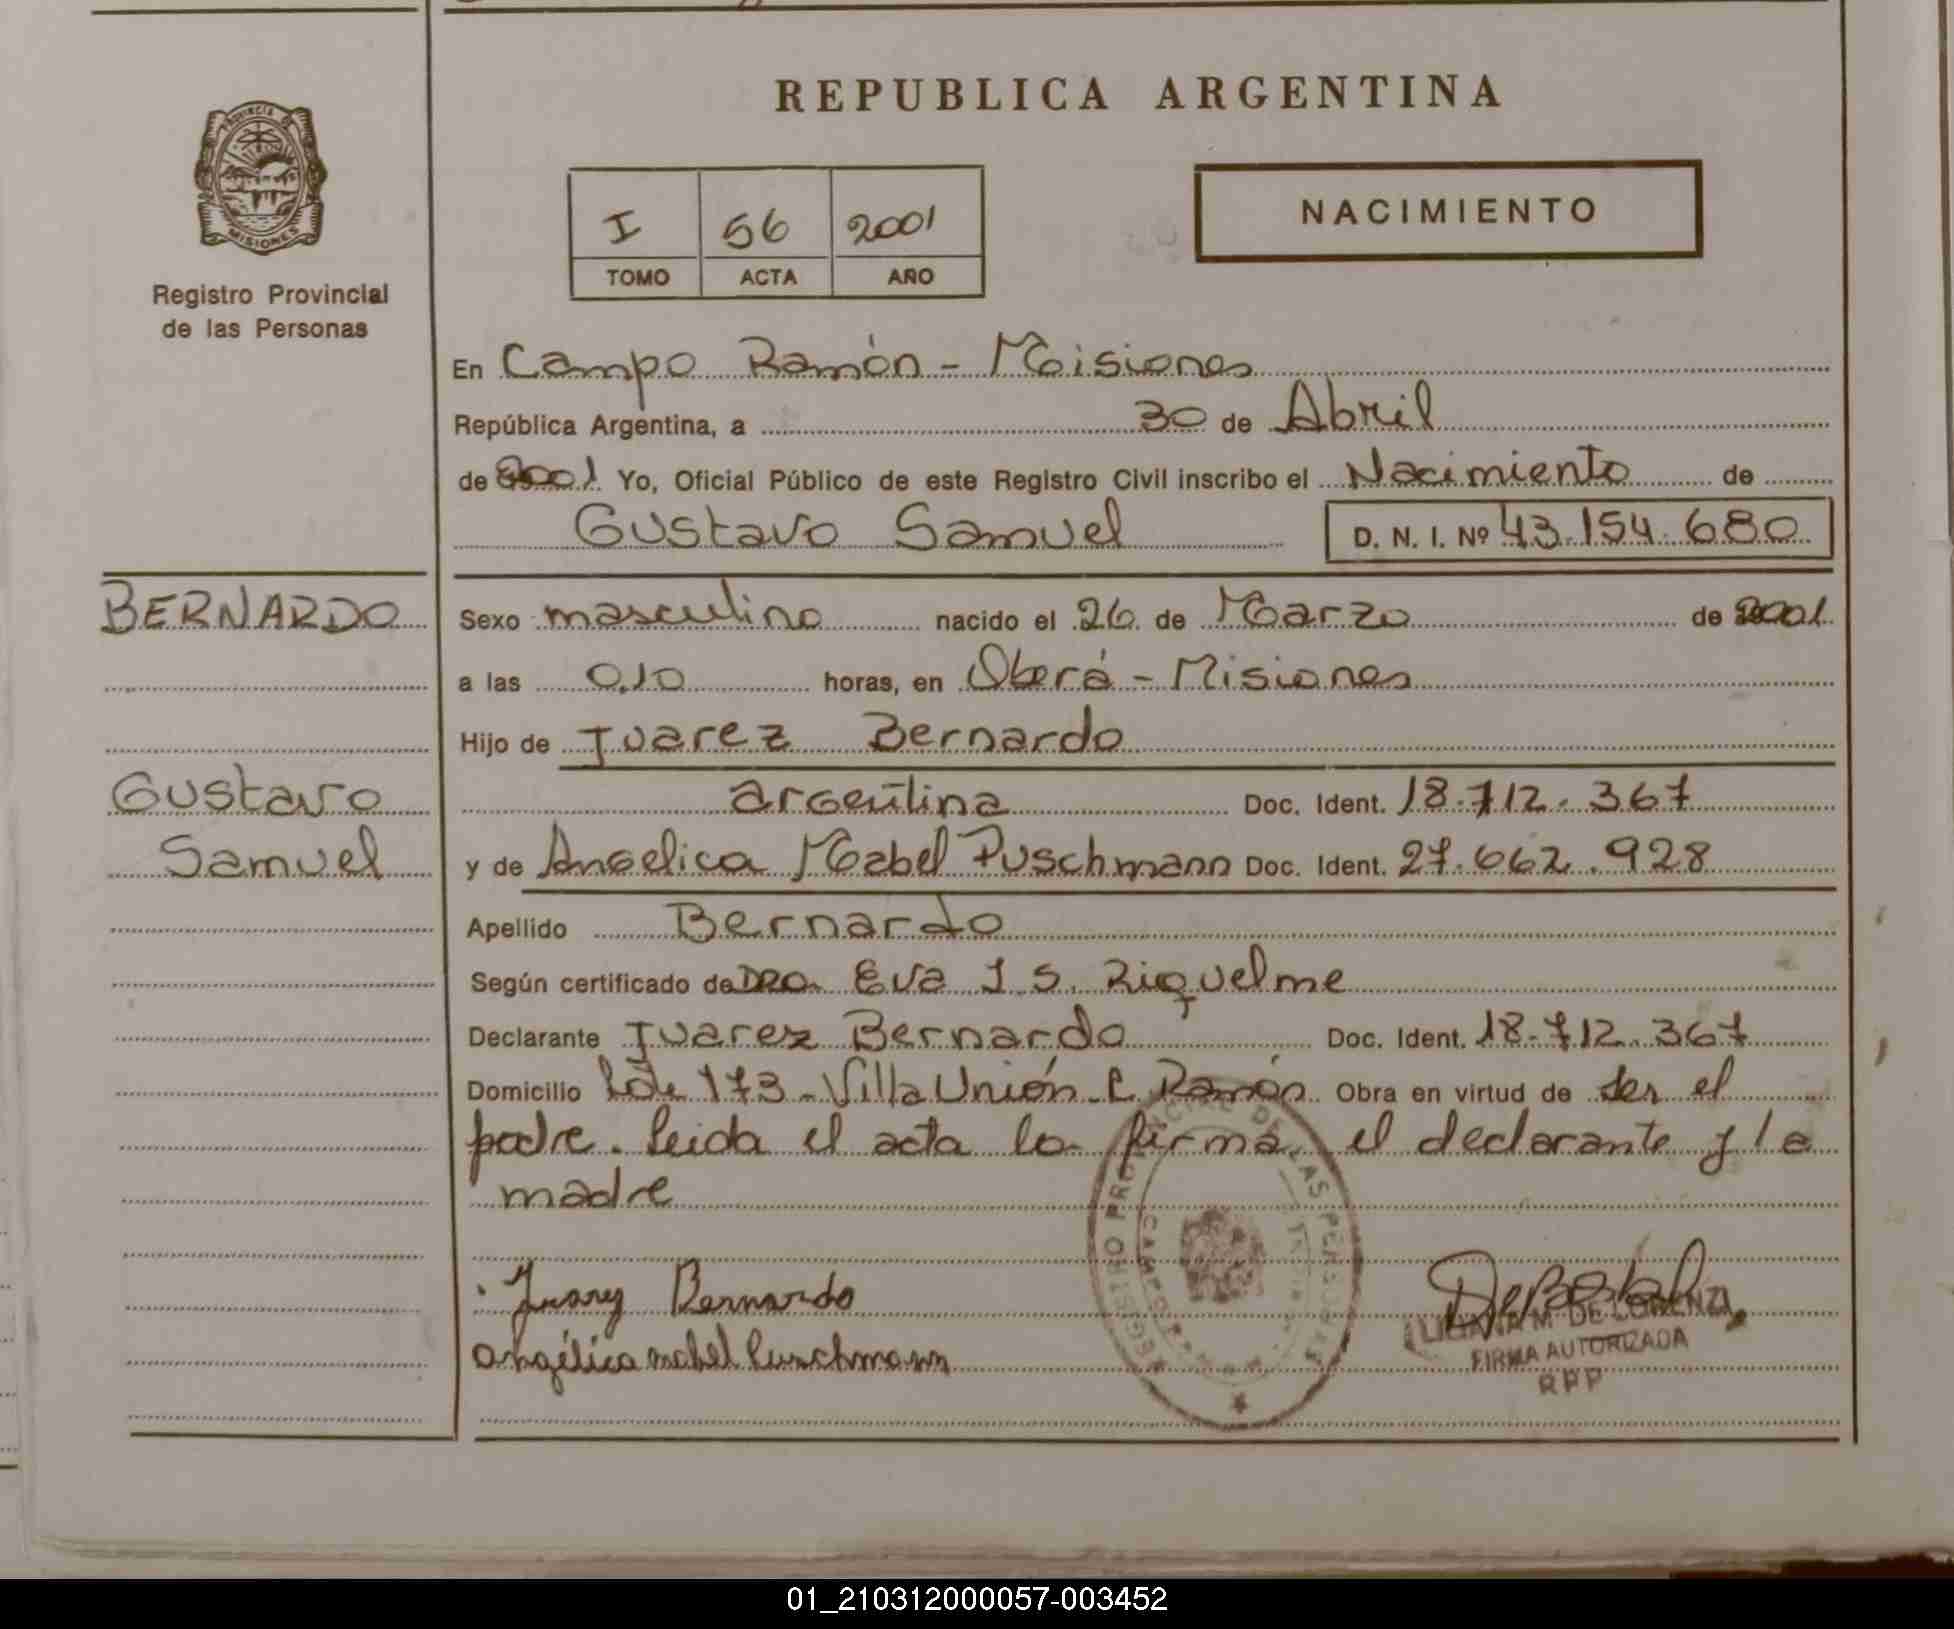 REPUBLICA ARGENTINA
PROVINCIA DE
MISIONES
Registro Provincial
de las Personas
I 56 2001
TOMO ACTA AÑO
NACIMIENTO
En Campo Ramón - Misiones
República Argentina, a 30 de Abril
de 2001 Yo, Oficial Público de este Registro Civil inscribo el Nacimiento de
Gustavo Samuel D. N. I. Nº 43.154.680
BERNARDO
Sexo masculino nacido el 26 de Marzo de 2001
a las 0,10 horas, en Oberá - Misiones
Hijo de Juarez Bernardo
Gustavo
Samuel
argentina Doc. Ident. 18.712.367
y de Angelica Mabel Puschmann Doc. Ident. 27.662.928
Apellido Bernardo
Según certificado de Dra. Eva I. S. Riquelme
Declarante Juarez Bernardo Doc. Ident. 18.712.367
Domicilio Lote 173 - Villa Unión - C. Ramón Obra en virtud de ser el
padre. Leida el acta la firma el declarante y la
madre
REGISTRO PROVINCIAL DE LAS PERSONAS
CAMPO
Juarez Bernardo
Angélica mabel Puschmann
LILIANA M. DE LORENZI
FIRMA AUTORIZADA
RPP
01_210312000057-003452